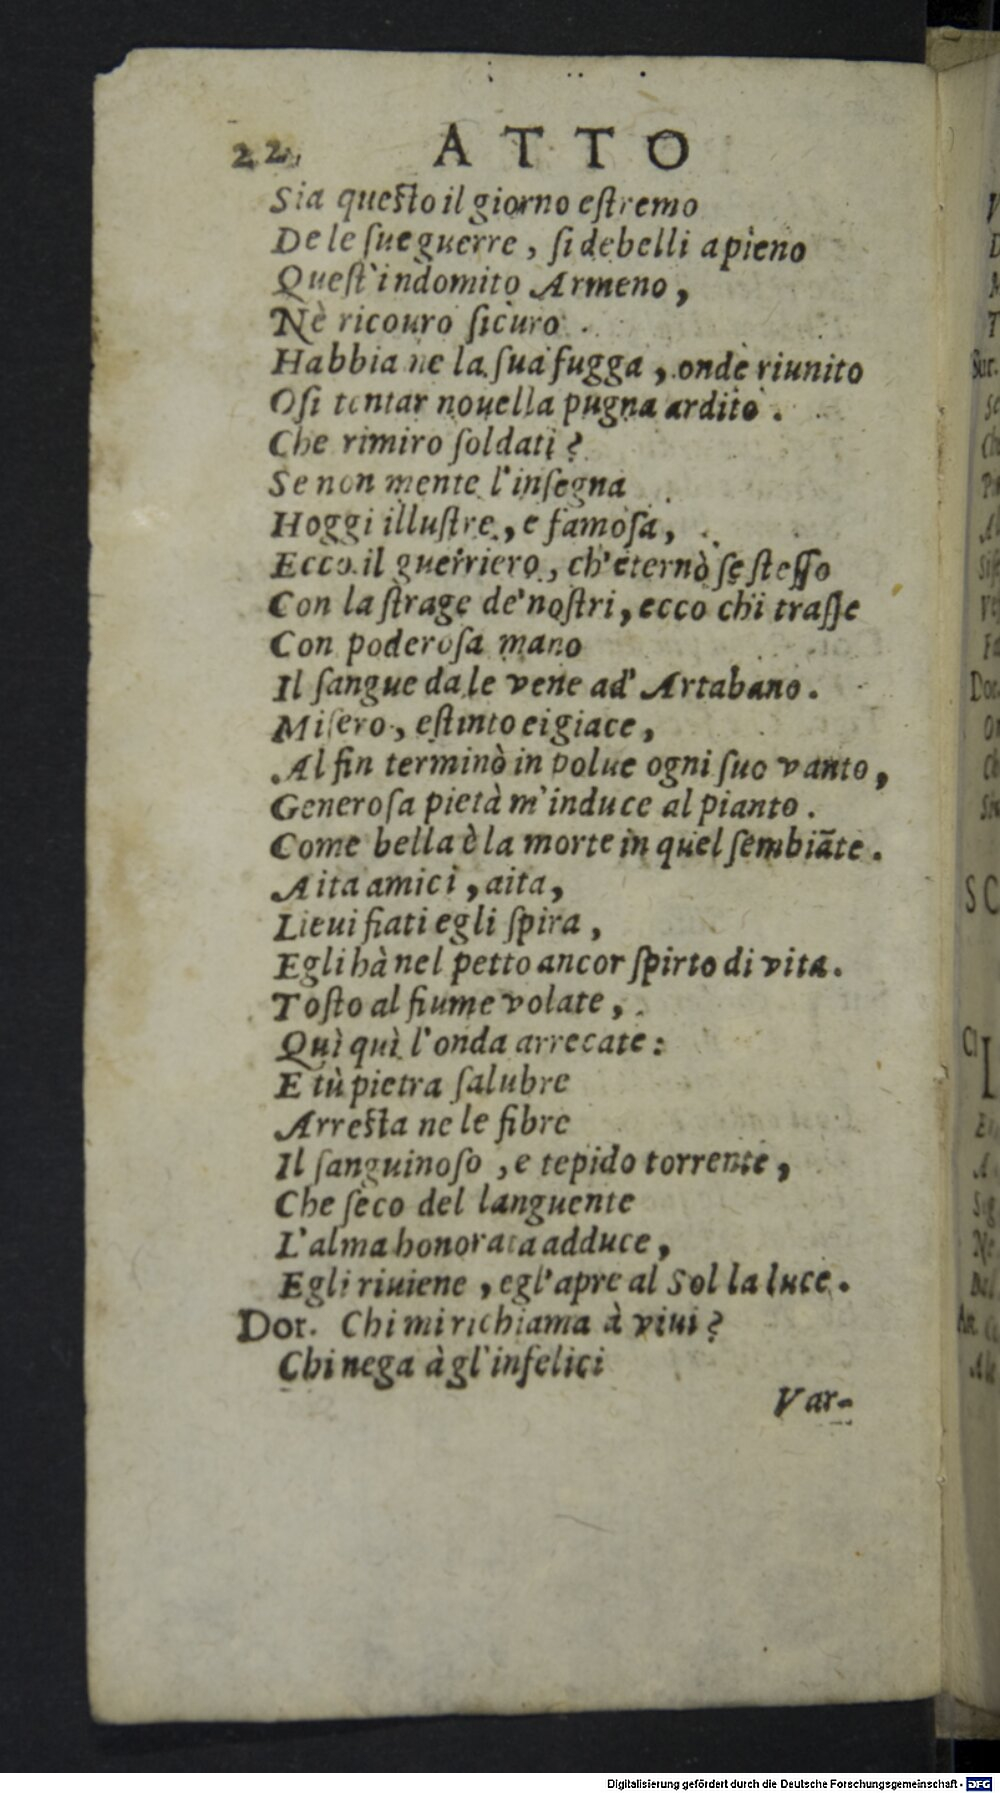 22. ATTO
Sia questo il giorno estremo
De le sue guerre, si debelli a pieno
Quest'indomito Armeno,
Nè ricouro sicuro.
Habbia ne la sua fugga, onde riunito
Osi tentar nouella pugna ardito.
Che rimiro soldati?
Se non mente l'insegna
Hoggi illustre, e famosa,
Ecco il guerriero, ch'eternò se stesso
Con la strage de' nostri, ecco chi trasse
Con poderosa mano
Il sangue da le vene ad' Artabano.
Misero, estinto ei giace,
Al fin terminò in polue ogni suo vanto,
Generosa pietà m'induce al pianto.
Come bella è la morte in quel sembiãte.
Aita amici, aita,
Lieui fiati egli spira,
Egli hà nel petto ancor spirto di vita.
Tosto al fiume volate,
Quì quì l'onda arrecate:
E tù pietra salubre
Arresta ne le fibre
Il sanguinoso, e tepido torrente,
Che seco del languente
L'alma honorata adduce,
Egli riuiene, egl'apre al Sol la luce.
Dor. Chi mi richiama à viui?
Chi nega à gl'infelici
Var-
Digitalisierung gefördert durch die Deutsche Forschungsgemeinschaft - DFG